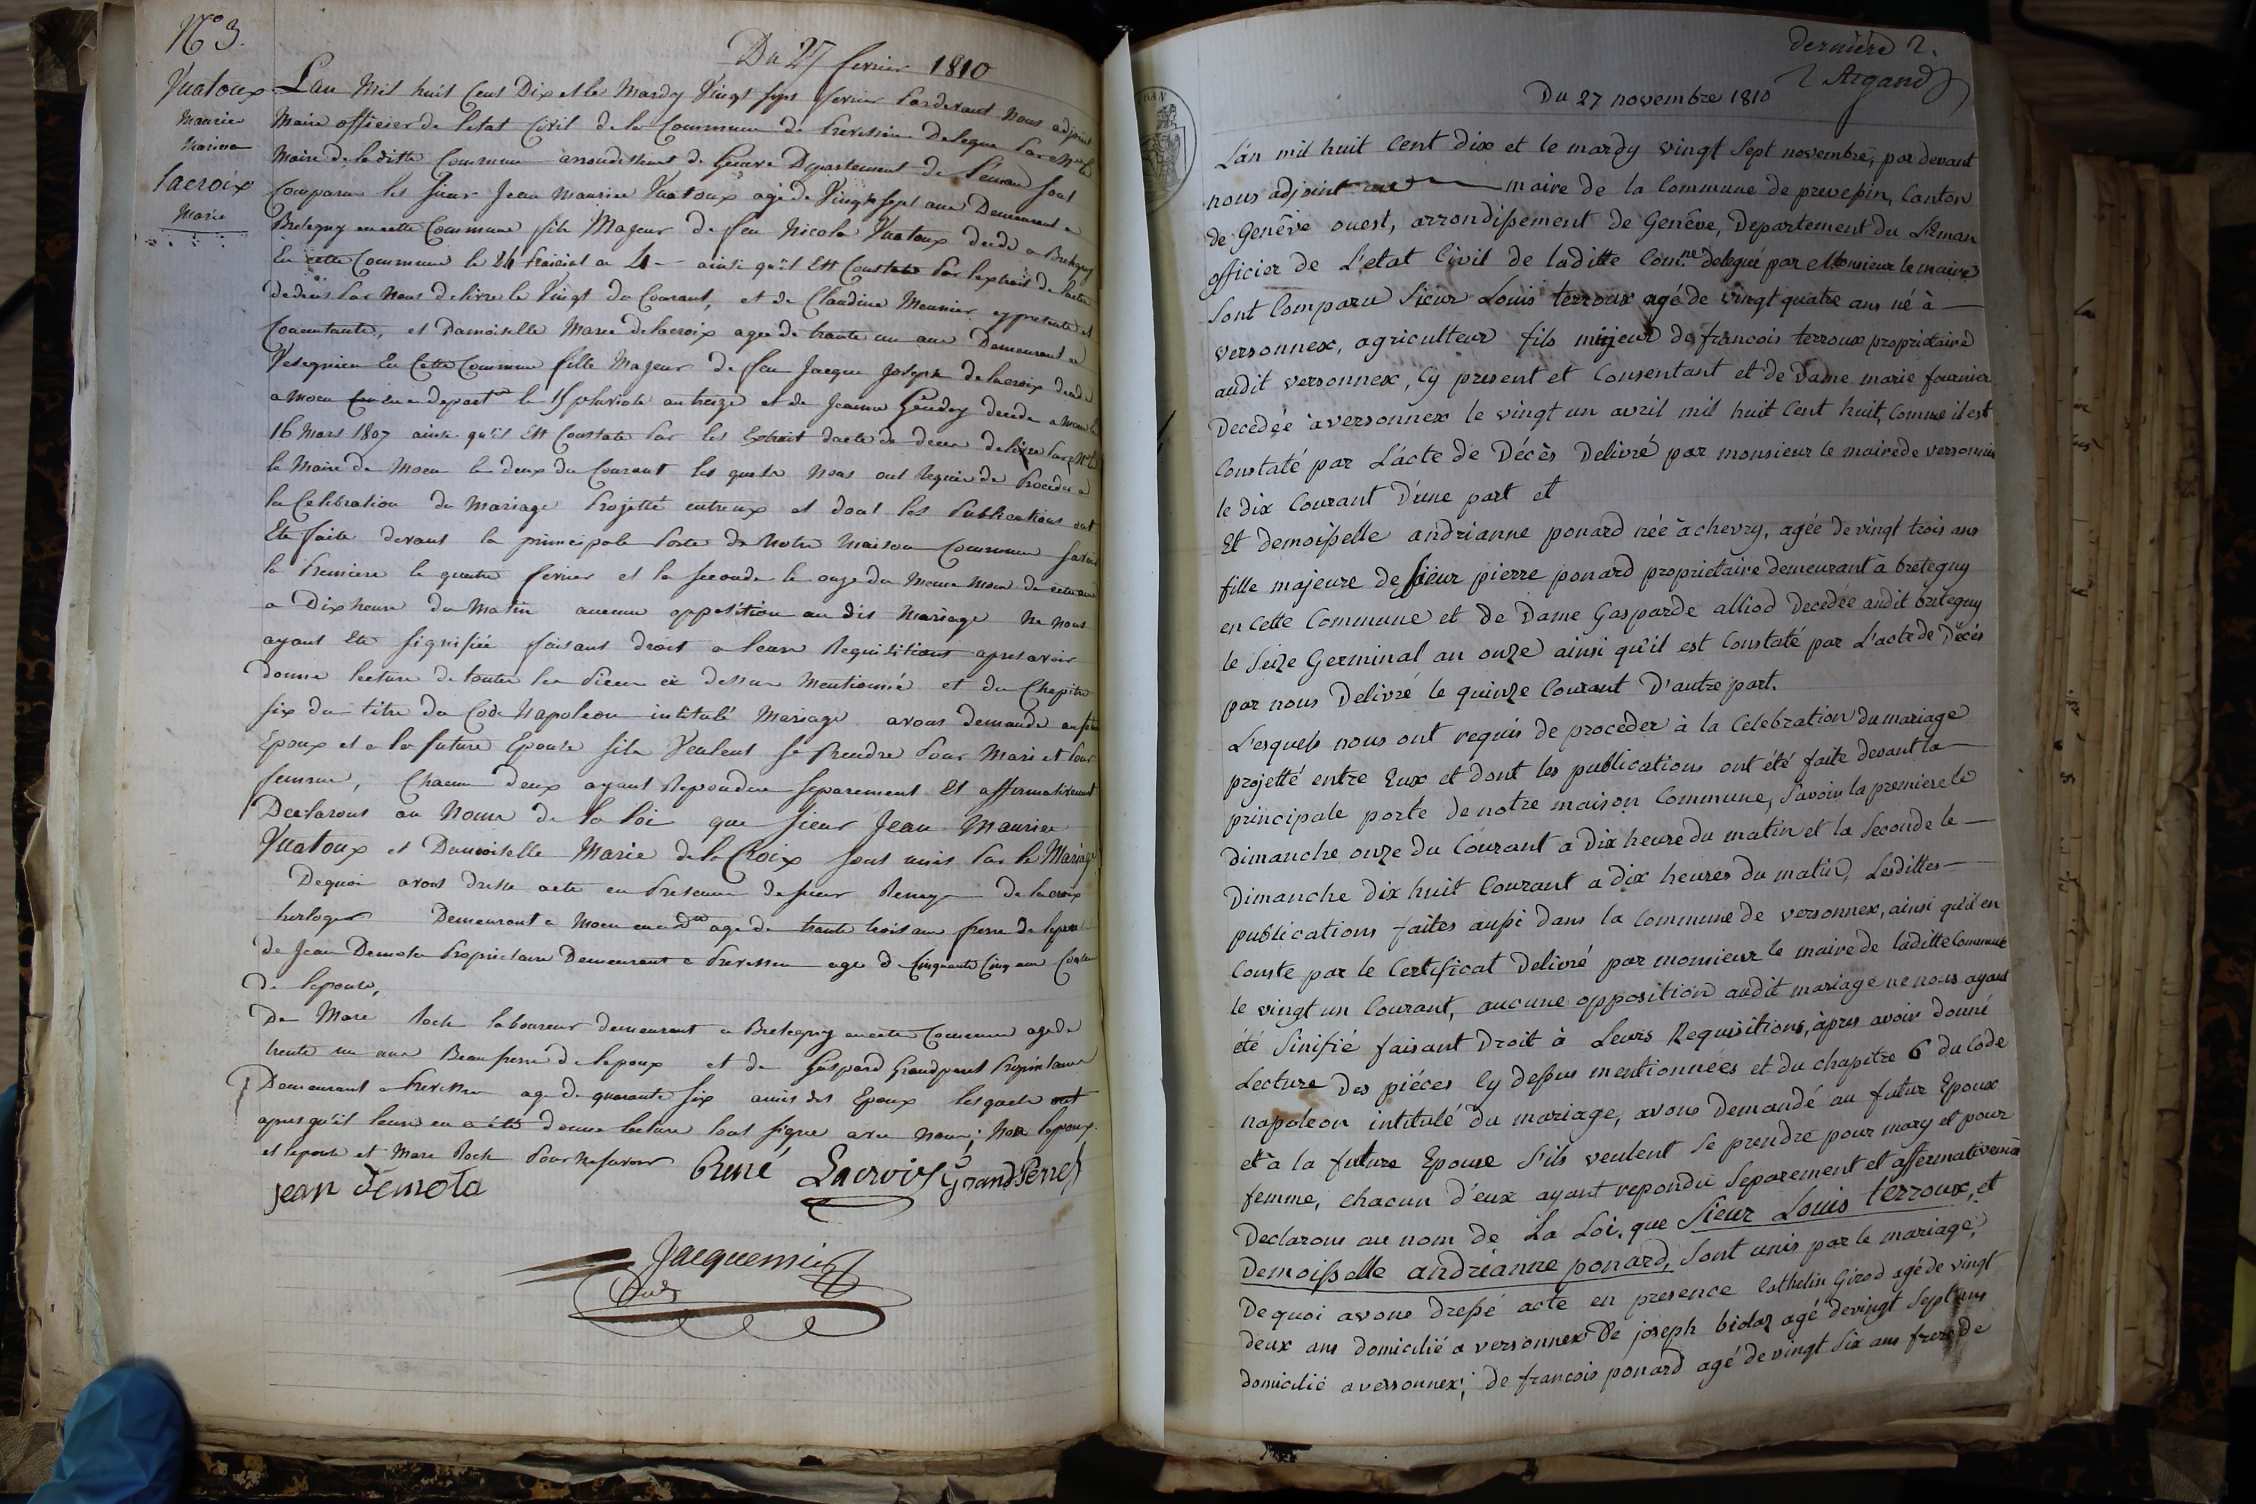 N° 3.
Du 27 fevrier 1810
Vuatoux
Maurice
Lacroix
Marie
L'an Mil huit Cent Dix et le Mardy Vingt Sept fevrier Pardevant Nous adjoint
Maire officier de l'etat Civil de la Commune de Prevessin delegue Par Mr le
Maire de laditte Commune arrondissement de Geneve Departement du Leman Sont
Comparu les sieur Jean Maurice Vuatoux agé de Vingt sept ans Demeurant a
Bretegny en cette Commune fils Majeur de feu Nicola Vuatoux decedé a Bretegny
En cette Commune le 24 an 4 ainsi qu'il Est Constaté Par l'extrait de l'acte
dedeces Par Nous delivre le Vingt du Courant, et de Claudine Meunier cy presente et
Consentante, et Damoiselle Marie delacroix agee de trante un ans Demeurant a
Vesegnin En Cette Commune fille Majeur de feu Jacque Joseph delacroix decede
a Moen depart le 15 pluviose an treize et de Jeanne Gendry decede a Moen le
16 Mars 1807 ainsi qu'il Est Constate Par les Extrait dacte de deces delivre Par Mr
le Maire de Moen le deux du Courant les quels Nous ont Requis de Proceder a
la Celebration du Mariage Projetté entreux et dont les Publications ont
Ete faite devant la principale Porte de Notre Maison Commune Savoir
la Premiere le quatre fevrier et la seconde le onze du Meme Mois de cette année
a Dix heure du Matin aucune opposition au dit Mariage Ne nous
ayant Ete signifiée faisant droit a leurs Requisitions apres avoir
donne lecture de toutes les Pieces ci dessus Mentionné et du Chapitre
six du titre du Code Napoleon intitulé Mariage avons demandé au futur
Epoux et a la future Epouse sils Veulent se Prendre Pour Mari et Pour
femme, Chacun deux ayant Repondu separement Et affirmativement
Declarons au Nom de la loi que sieur Jean Maurice
Vuatoux et Damoiselle Marie de la Croix sont unis Par le Mariage
Dequoi avons dresse acte en Presence de sieur Renez delacroix
horloger Demeurant a Moen age de trante trois ans frere de lepouse
de Jean Demola Proprietaire Demeurant a Prevessin age d Cinquante Cinq ans Cousin
de lepouse,
De Marc Roch laboureur demeurant a Bretegny en cette Commune age de
trente un ans Beau frere de lepoux et de Gaspard Grandperret Proprietaire
Demeurant a Prevessin age de quarante six amis des Epoux lesquels ont
apres qu'il leurs en a été donne lecture tout signe avec Nous; Non lepoux
et lepouse et Marc Roch Pour Ne savoir
jean Demola René Lacroix GrandPerret
Jacquemier
Adj
derniere 2.
Argand
Du 27 novembre 1810
L'an mil huit Cent dix et le mardy vingt Sept novembre, par devant
nous adjoint maire de la Commune de prevesin, Canton
de Genêve ouest, arrondissement de Genêve, Departement du Léman
officier de L'etat Civil de laditte Com.ne delegué par Monsieur le maire
Sont Comparu Sieur Louis terroux agé de vingt quatre ans né à
versonnex, agriculteur fils majeur de francois terroux proprietaire
audit versonnex, Cy present et Consentant et de Dame marie fournier
Decedée à versonnex le vingt un avril mil huit Cent huit, Comme il est
Constaté par L'acte de Décès Delivré par monsieur le maire de versonnex
le dix Courant D'une part et
Et demoisselle andrianne ponard née à chevry, agée de vingt trois ans
fille majeure de Sieur pierre ponard proprietaire demeurant à bretegny
en Cette Commune et de Dame Gasparde alliod Decedée audit bretegny
le Seize Germinal an onze ainsi qu'il est Constaté par L'acte de Décès
par nous Delivré le quinze Courant D'autre part.
L'esquels nous ont requis de proceder à la Celebration du mariage
projetté entre Eux et dont les publications ont été faite devant la
principale porte de notre maison Commune, Savoir la premiere le
Dimanche onze du Courant a Dix heure du matin et la Seconde le
Dimanche dix huit Courant a dix heures du matin, Lesdittes
publications faites aussi dans la Commune de versonnex, ainsi qu'il en
Conste par le Certificat Delivré par monsieur le maire de laditte Commune
le vingt un Courant, aucune opposition audit mariage ne nous ayant
été Sinifié faisant Droit à Leurs Requisitions, àpres avoir donné
Lecture Des piéces Cy dessus mentionnées et du chapitre 6 du Code
napoleon intitulé du mariage, avons Demandé au futur Epoux
et à la future Epouse S'ils veulent Se prendre pour mary et pour
femme, chacun d'eux ayant repondu Separement et affermativement
Declarons au nom de La Loi, que Sieur Louis terroux, et
Demoisselle andrianne ponard, Sont unis par le mariage,
De quoi avons Dressé acte en presence Cathelin Girod agé de vingt
deux ans domicilié a versonnex De joseph bidaz agé de vingt Sept ans
domicilié a versonnex; de francois ponard agé de vingt Six ans frere de